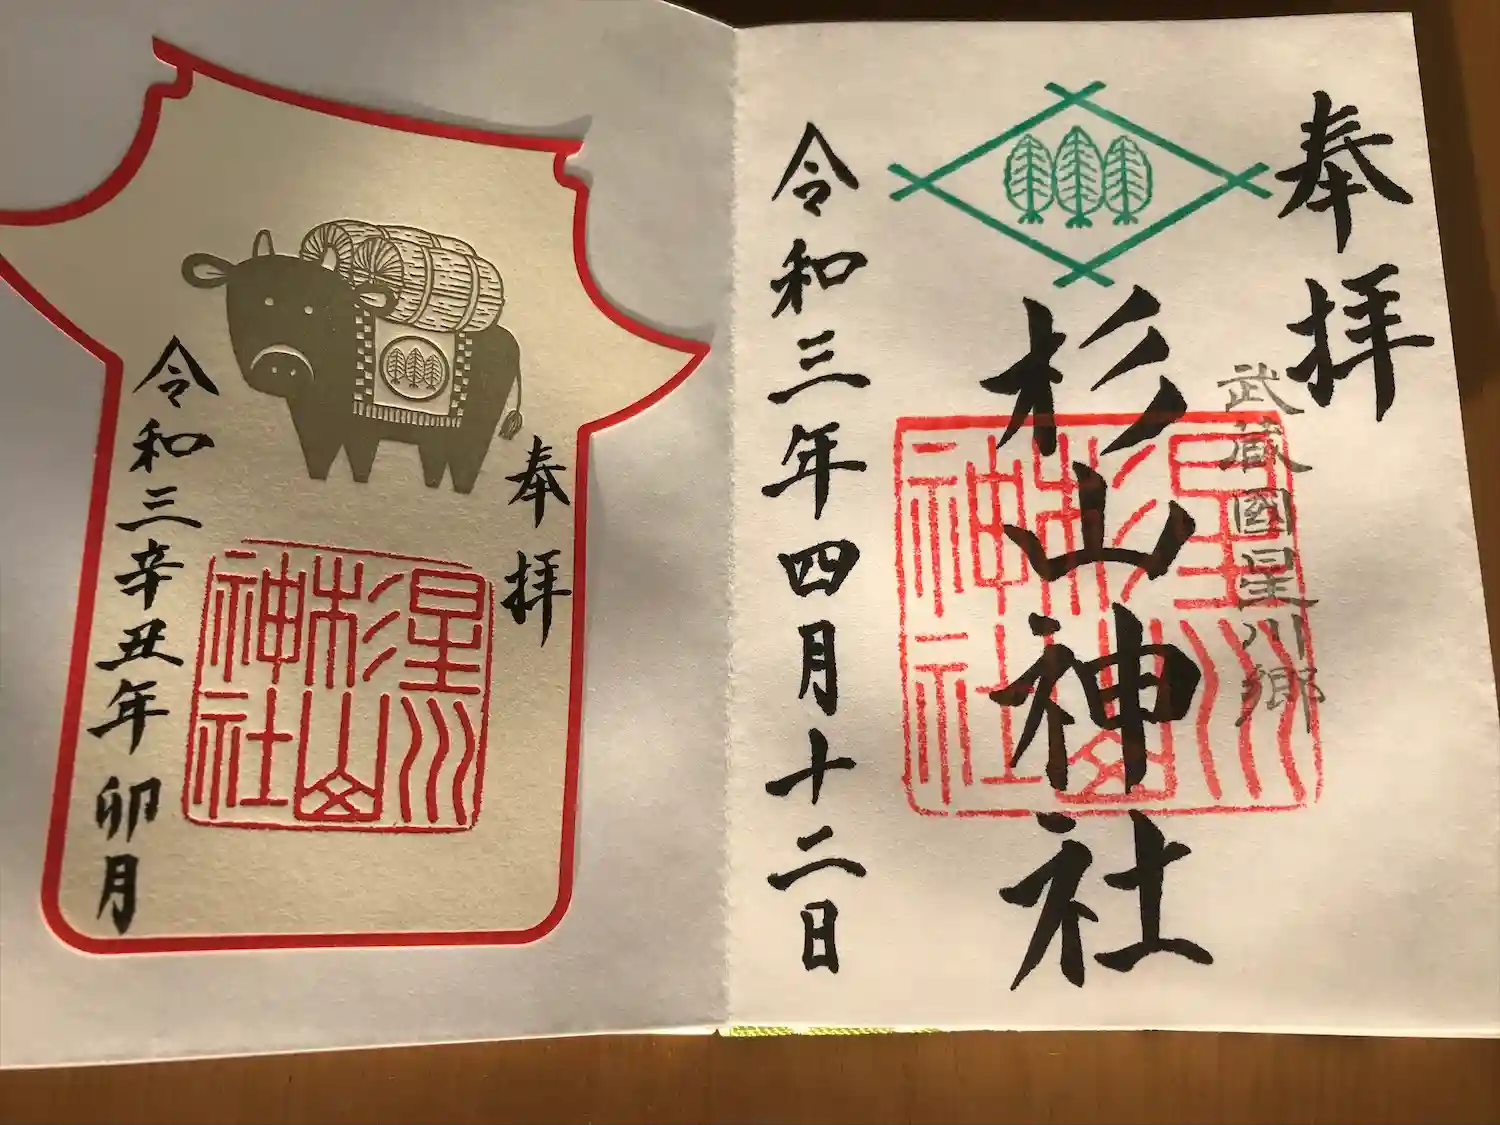 奉拝
武蔵國星川郷
杉山神社
星川
杉山
神社
令和三年四月十二日
奉拝
星川
杉山
神社
令和三辛丑年 卯月